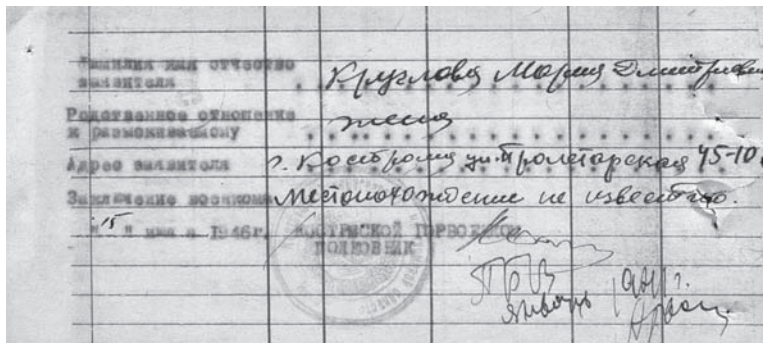 Фамилия имя отчество
заявителя Круглова Мария Дмитриевн
Родственное отношение
к разыскиваемому жена
Адрес заявителя г. Кострома ул. Пролетарская 45-10
Заключение военкома Местонахождение не известно.
"15" мая 1946г. КОСТРОМСКОЙ ГОРВОЕНКОМ
ПОЛКОВНИК
январь